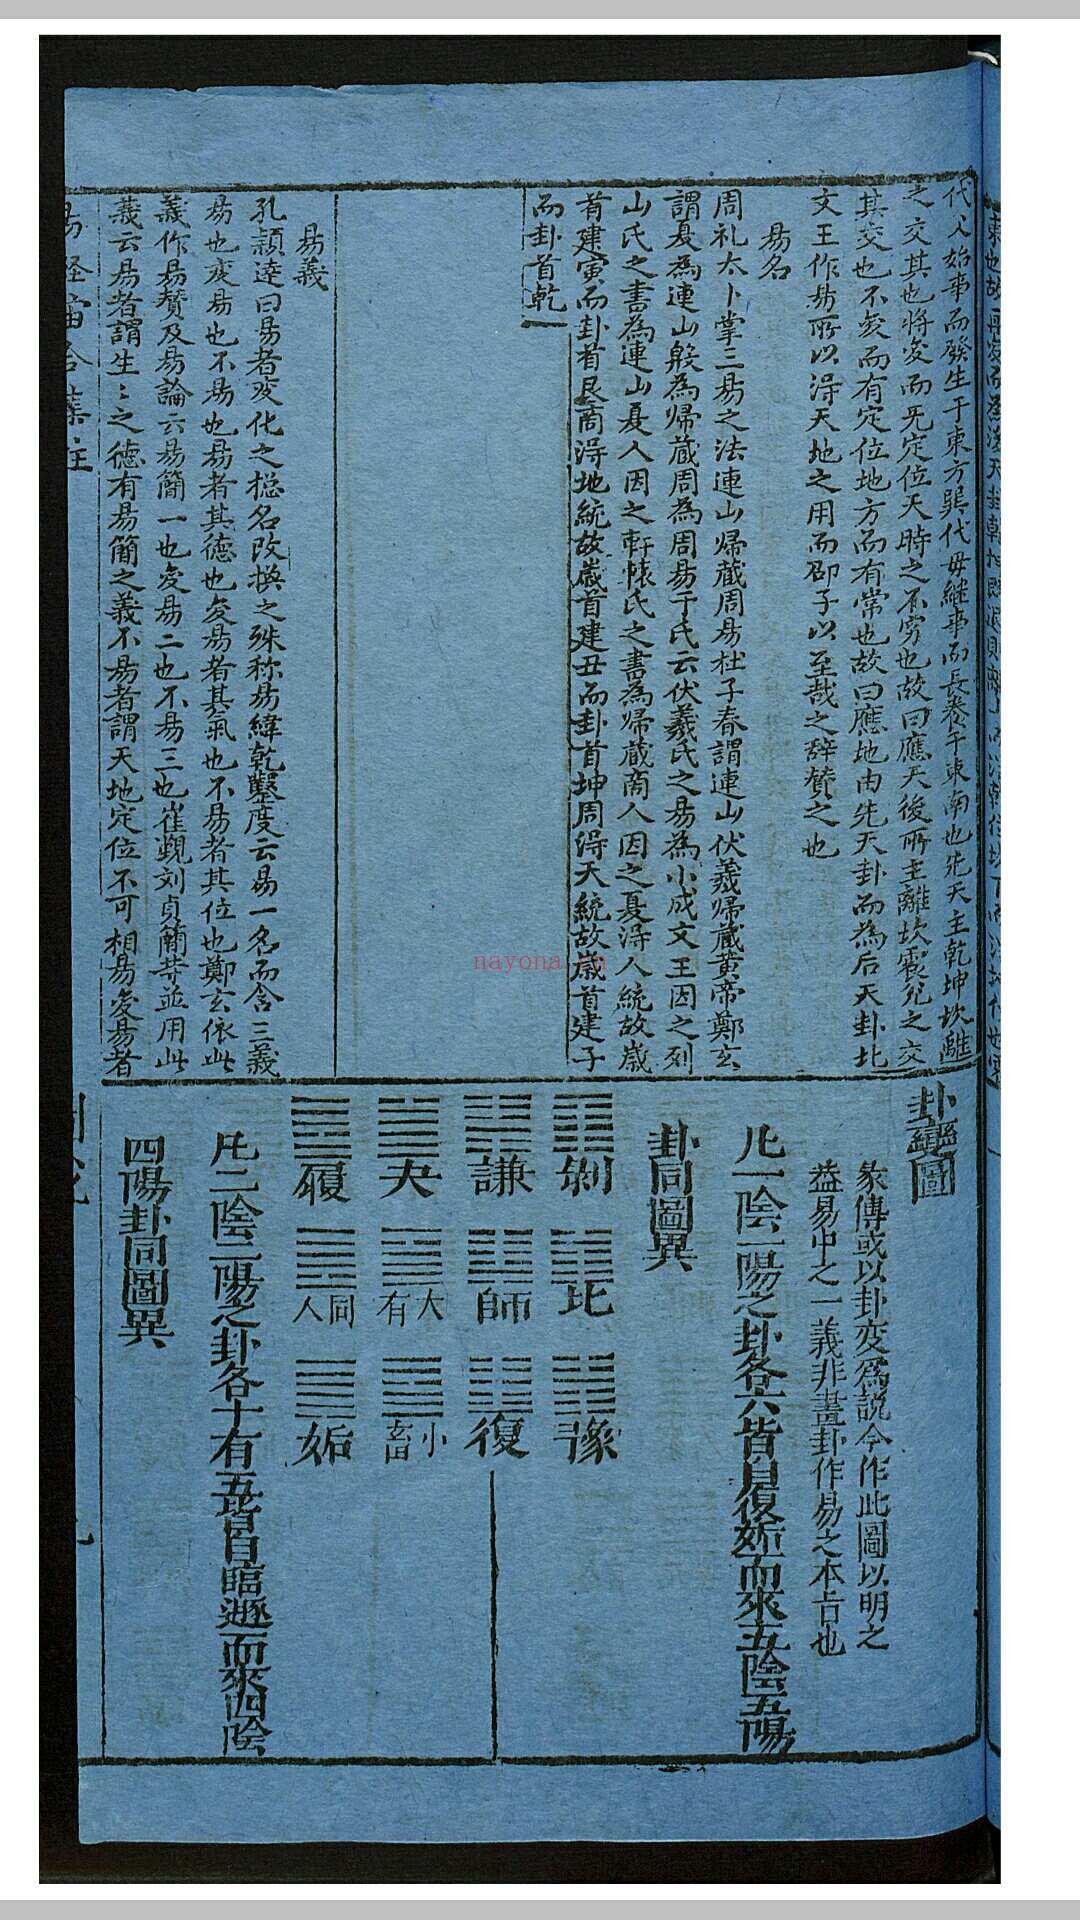 代父始事而發生于東方巽代母継事而長養于東南也先天主乾坤坎離
之交其也將変而无定位天時之不窮也故曰應天後所主離坎震兌之交
其交也不変而有定位地方而有常也故曰應地由先天卦而為后天卦此
文王作易所以得天地之用而邵子以至哉之辞賛之也
易名
周礼太卜掌三易之法連山帰藏周易杜子春謂連山伏羲帰藏黄帝鄭玄
謂夏為連山殷為帰藏周為周易于氏云伏羲氏之易為小成文王因之列
山氏之書為連山夏人因之軒轅氏之書為帰藏商人因之夏得人統故歳
首建寅而卦首艮商得地統故歳首建丑而卦首坤周得天統故歳首建子
而卦首乾
易義
孔穎達曰易者変化之揔名改換之殊称易緯乾鑿度云易一名而含三義
易也変易也不易也易者其徳也変易者其氣也不易者其位也鄭玄依此
義作易賛及易論云易簡一也変易二也不易三也崔覲刘貞簡等並用此
義云易者謂生〻之徳有易簡之義不易者謂天地定位不可相易変易者
卦變圖
彖傳或以卦変為説今作此圖以明之
蓋易中之一義非畫卦作易之本旨也
凡一陰一陽之卦各六皆自復姤而來五陰五陽
卦同圖異
剝 比 豫
謙 師 復
夬 大有 小畜
履 同人 姤
凡二陰二陽之卦各十有五皆自臨遯而來四陰
四陽卦同圖異
易經宙合集註